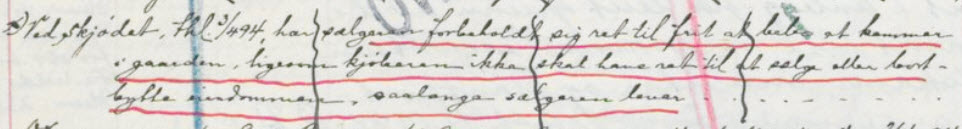 Ved skjødet, thl. 3/494, har sælgeren forbeholdt sig ret til frit at bebo et kammer
i gaarden, ligesom kjøberen ikke skal have ret til at sælge eller bort-
bytte eiendommen, saalænge sælgeren lever